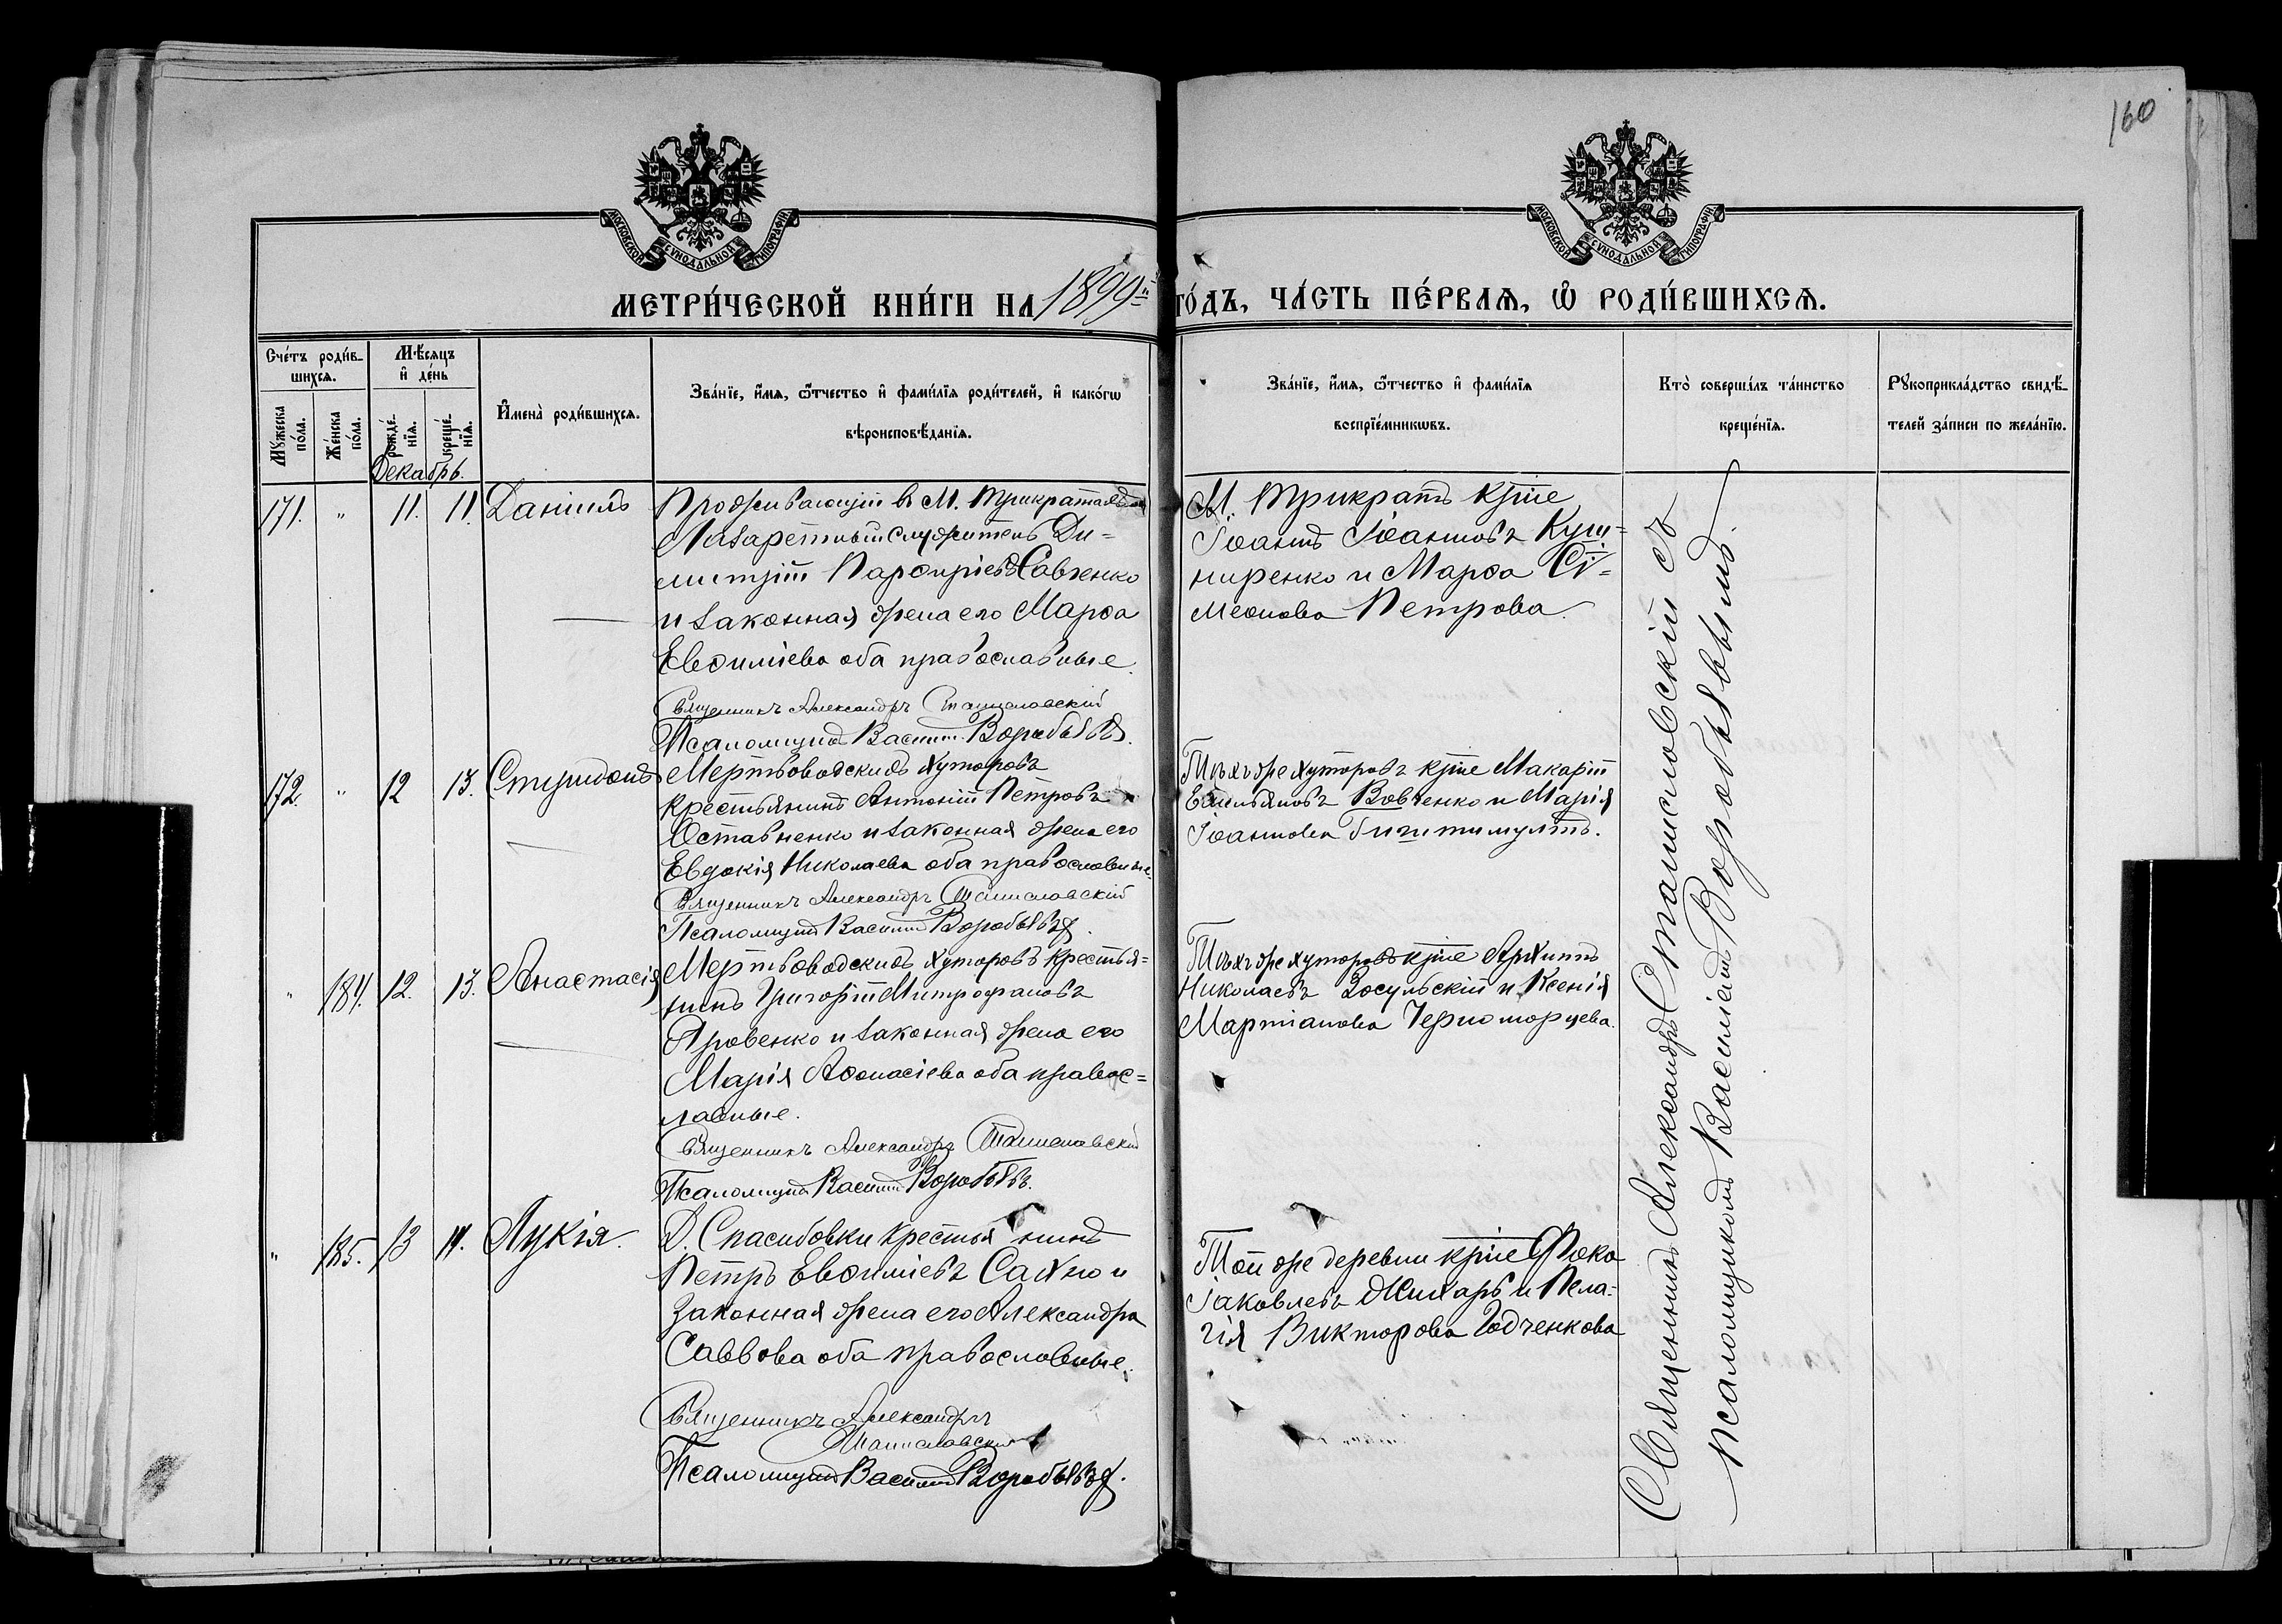 160
МОСКОВСКОЙ СѴНОДАЛЬНОЙ ТИПОГРАФІИ
МОСКОВСКОЙ СѴНОДАЛЬНОЙ ТИПОГРАФІИ
МЕТРИ́ЧЕСКОЙ КНИ́ГИ НА 1899й ГО́ДЪ, ЧА́СТЬ ПЕ́РВАѦ, Ѽ РОДИ́ВШИХСѦ.
Сче́тъ роди́в-
шихсѧ.
Мꙋжеска по́ла.
Же́нска по́ла.
Мѣ́сѧцъ и де́нь
рожде́-нїѧ.
креще́-нїѧ.
И҆мена̀ роди́вшихсѧ.
Зва́нїе, и҆́мѧ, ѻ҆́тчество и҆ фами́лїѧ роди́телей, и҆ како́гѡ
вѣроисповѣ́данїѧ.
Зва́нїе, и҆́мѧ, ѻ҆́тчество и҆ фами́лїѧ
воспрїе́мникѡвъ.
Кто̀ соверша́лъ та́инство
креще́нїѧ.
Рꙋкоприкла́дство свидѣ́-
телей за́писи по жела́нїю.
Декабрь.
171. " 11. 11. Даніилъ
Проживающій в М. Трикратахъ
Лазаретный служитель Ди-
митрій Парфиріевъ Савченко
и законная жена его Марѳа
Евѳиміева оба православные.
Священникъ Александръ Станиславскій
Псаломщикъ Василій Воробьевъ.
М. Трикратъ кр͞не
Іоаннъ Іоанновъ Куш-
ниренко и Марѳа Сі-
меонова Петрова.
172. " 12 13. Спиридонъ
Мертвоводскихъ хуторовъ
крестьянинъ Антоній Петровъ
Оставненко и законная жена его
Евдокія Николаева оба православные.
Священникъ Александръ Станиславскій
Псаломщикъ Василій Воробьевъ.
Тѣхъ же хуторовъ кр͞не Макарій
Емельяновъ Вовченко и Марія
Іоаннова
" 184. 12. 13. Анастасія
Мертвоводскихъ хуторовъ крестья-
нинъ Григорій Митрофановъ
Яровенко и законная жена его
Марія Аѳонасіева оба правос-
лавные.
Священникъ Александръ Станиславскій
Псаломщикъ Василій Воробьевъ.
Тѣхъ же хуторовъ кр͞не Архипъ
Николаевъ Зосульскій и Ксенія
Мартіанова Черноморцева.
" 185. 13 14. Лукія.
Д. Спасибовки крестьянинъ
Петръ Евѳиміевъ Сахно и
законная жена его Александра
Саввова оба православные.
Священникъ Александръ
Станиславскій
Псаломщикъ Василій Воробьевъ.
Той же деревни кр͞не Фока
Іаковлевъ Жихарь и Пела-
гія Викторова Годченкова
Священникъ Александръ Станиславскій съ
псаломщикомъ Василіемъ Воробьевымъ.